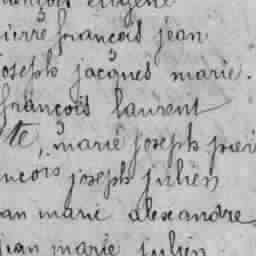 françois eugène
pierre françois jean
joseph jacques marie.
françois laurent
te, marie joseph pier
ancois joseph julien
ean marie alexandre
jean marie julien